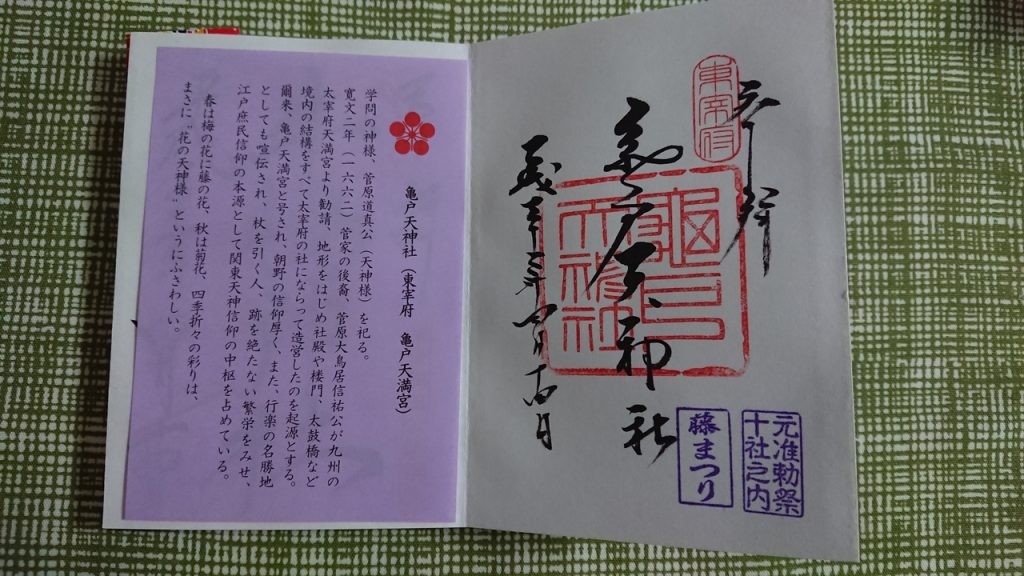 奉拝
東宰府
元准勅祭
十社之内
亀戸天神社
龜戸
天神社
藤まつり
亀戸天神社（東宰府　亀戸天満宮）
学問の神様、菅原道真公（天神様）を祀る。
寛文二年（一六六二）菅家の後裔、菅原大鳥居信祐公が九州の
太宰府天満宮より勧請、地形をはじめ社殿や楼門、太鼓橋など
境内の結構をすべて太宰府の社にならって造営したのを起源とする。
爾来、亀戸天満宮と号され、朝野の信仰厚く、また、行楽の名勝地
としても喧伝され、杖を引く人、跡を絶たない繁栄をみせ、
江戸庶民信仰の本源として関東天神信仰の中枢を占めている。
春は梅の花に藤の花、秋は菊花、四季折々の彩りは、
まさに〝花の天神様〟というにふさわしい。